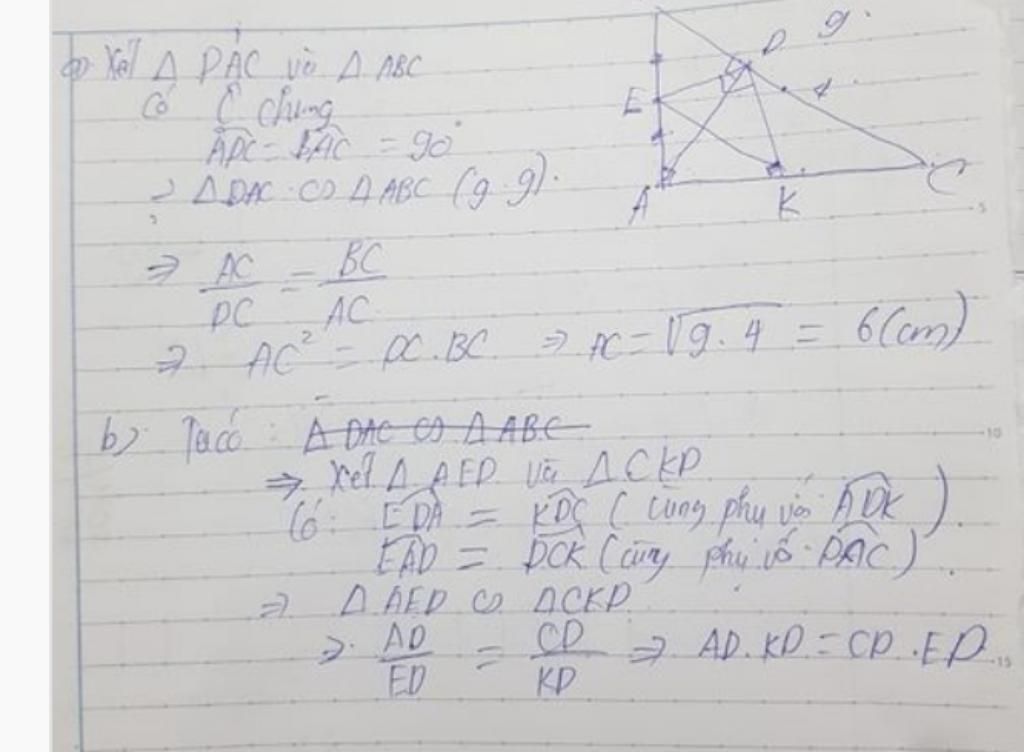 D 9.
E 4
A K C
a) Xét Δ DAC và Δ ABC
Có Ĉ chung
ADC = BAC = 90°
⇒ Δ DAC ∽ Δ ABC (g.g).
⇒ AC/DC = BC/AC
⇒ AC² = DC.BC ⇒ AC = √9.4 = 6(cm)
b) Ta có : Δ DAC ∽ Δ ABC
⇒ Xét Δ AED và Δ CKD
Có: EDA = KDC ( cùng phụ với ADK ).
EAD = DCK (cùng phụ với DAC).
⇒ Δ AED ∽ ΔCKD
⇒ AD/ED = CD/KD ⇒ AD.KD = CD.ED
5
10
15